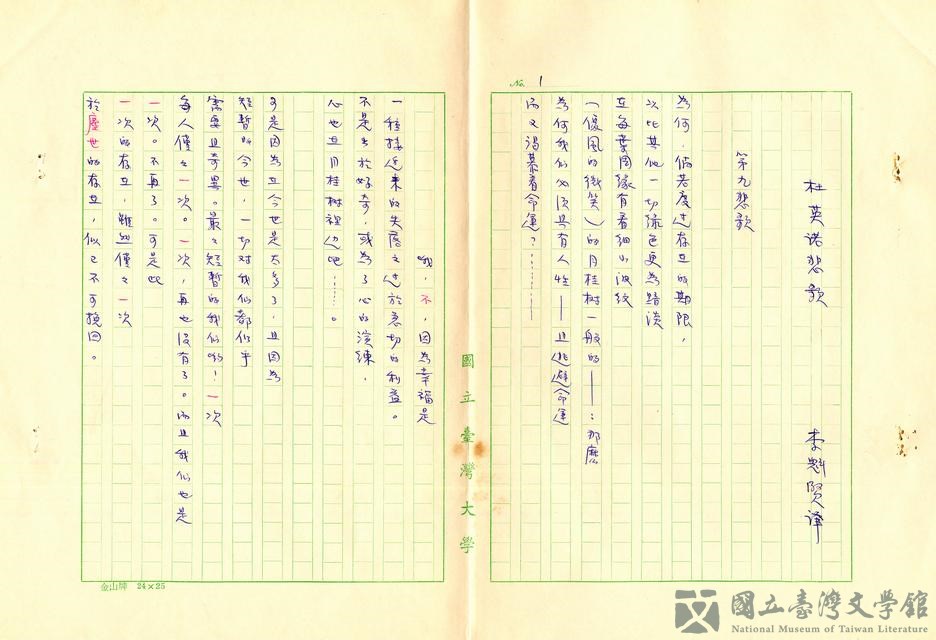 No. 1
杜英諾悲歌
李魁賢譯
第九悲歌
為何，倘若度过存在的期限，
次比其他一切綠色更為暗淡
在每葉周緣有着細小波紋
（像風的微笑）的月桂樹一般的——：那麼
為何我们必須具有人性——且逃避命運
而又渴慕着命運？⋯⋯⋯
哦，不，因為幸福是
一種接近來的失落之过於急切的利益。
不是出於好奇，或為了心的演練，
心也在月桂樹裡边吧⋯⋯。
可是因為在今世是太多了，且因為
短暫的今世，一切对我们都似乎
需要且奇異。最々短暫的我们啲！一次
每人僅々一次。一次，再也没有了。而且我们也是
一次。不再了。可是此
一次的存在，雖然僅々一次
於塵世的存在，似已不可挽回。
國立臺灣大學
金山牌 24×25
國立臺灣文學館
National Museum of Taiwan Literature